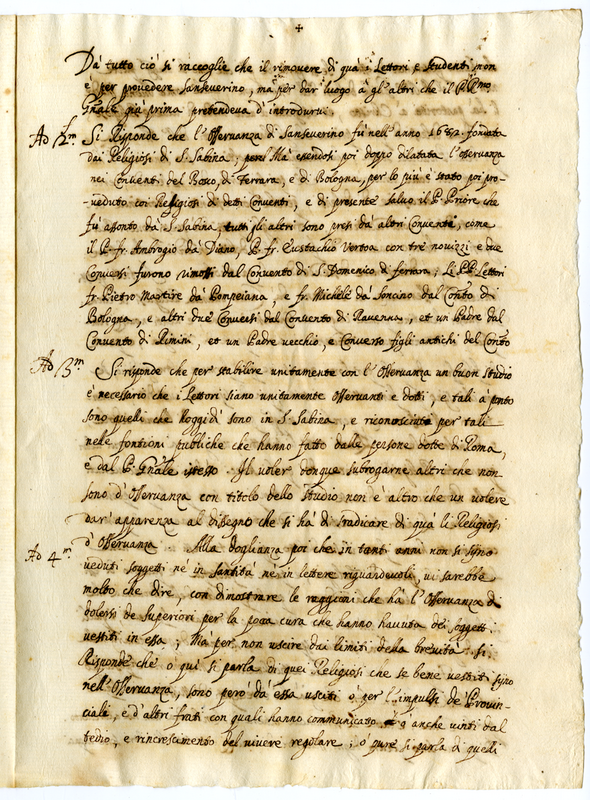 Da tutto ciò si raccoglie che il rimovere di quà i Lettori e Studenti non
è per provedere Sanseverino, mà per dar luogo à gl'altri che il P. Rmo
Gñale già prima pretendeva d'introdurvi.
Ad 2m Si Risponde che l'Osservanza di Sanseverino fù nell'anno 1652 fondata
dai Religiosi di S. Sabina; però Mà essendosi poi doppo dilatata l'osservanza
nei Conventi del Bosco, di Ferrara, e di Bologna, per lo più è stato poi pro-
-veduto coi Religiosi di detti Conventi, e di presente salvo il P. Priore che
fù assonto dà S. Sabina, tutti gli altri sono presi dà altri Conventi, come
il P. fr. Ambrogio dà Diano, P. fr. Eustachio Vertoa con trè novizzi e due
Conversi furono rimossi dal Convento di S. Domenico di ferrara; Li PP. Lettori
fr. Pietro Martire dà Pompeiana, e fr. Michele dà Soncino dal Conto di
Bologna, e altri due Conversi dal Convento di Ravenna, et un Padre dal
Convento di Rimini, et un Padre vecchio, e Converso figli antichi del Conto
Ad 3m Si risponde che per stabilire unitamente con l'Osservanza un buon studio
è necessario che i Lettori siano unitamente Osservanti e dotti, e tali à ponto
sono quelli che hoggidì sono in S. Sabina, e riconosciuti per tali
nelle fontioni publiche che hanno fatto dalle persone dotte di Roma,
e dal P. Gñale istesso. Il voler donque subrogarne altri che non
sono d'Osservanza con titolo dello studio non è altro che un volere
dar' apparenza al disegno che si hà di sradicare di quà li Religiosi
d'Osservanza.
Ad 4m Alla doglianza poi che in tanti anni non si siano
veduti soggetti nè in santità nè in lettere riguardevoli, vi sarebbe
molto che dire, con dimostrare le raggioni che hà l'Osservanza di
dolersi de Superiori per la poca cura che hanno havuta dei soggetti
vestiti in essa; Mà per non uscire dai limiti della brevità si
Risponde che o quì si parla di quei Religiosi che se bene vestiti sijno
nell'Osservanza, sono però dà essa usciti ò per l'impulsi de' Provin-
ciali, e d'altri frati con quali hanno communicato ò anche vinti dal
tedio, e rincrescimento del vivere regolare; ò pure si parla di quelli